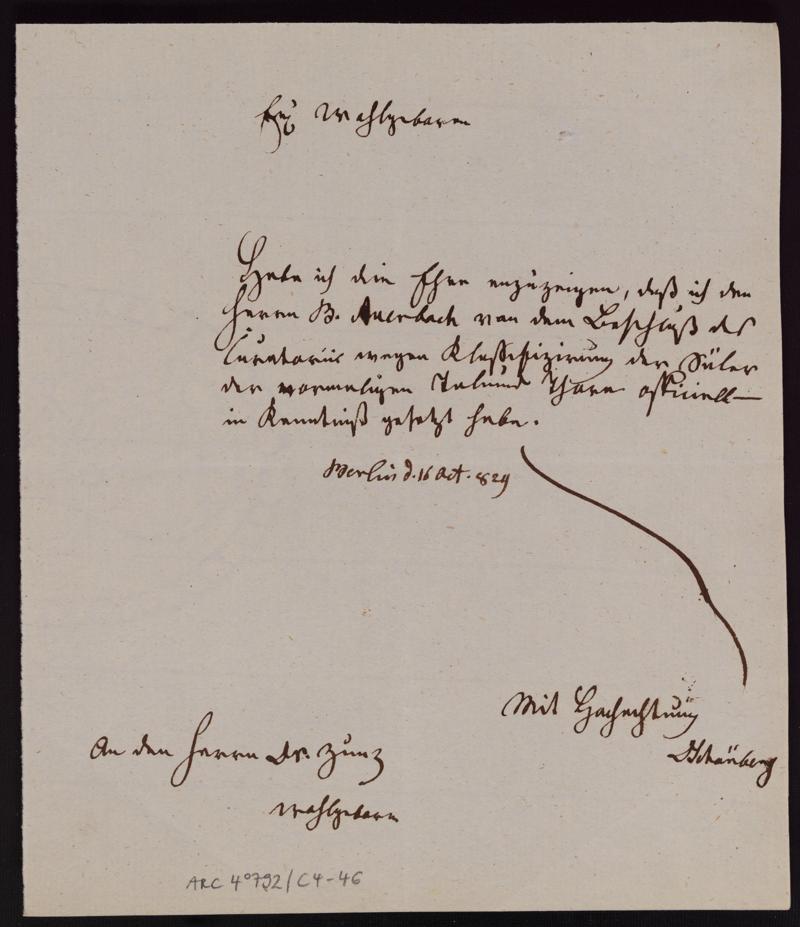 Ew Wohlgeboren
Habe ich die Ehre anzuzeigen, daß ich den
Herrn B. Auerbach von dem Beschluß des
Curatoriis wegen Klassifizirung der Süler
der vormaligen Talmud Thora officiell
in Kenntniß gesetzt habe.
Berlin d. 16 Oct. 829
Mit Hochachtung
Schönberg
An den Herrn Dr. Zunz
Wohlgeborn
ARC 4°792/C4-46